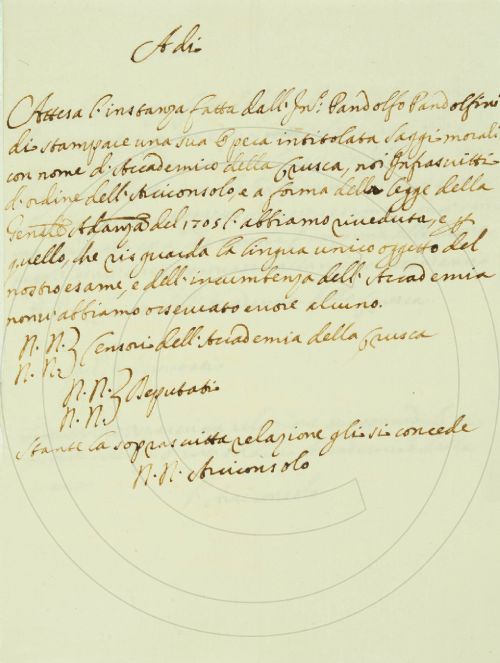 Adi
Attesa l'instanza fatta dall' Pandolfo Pandolfini
di stampare una sua Opera intitolata Saggi morali
con nome di Accademico della Crusca, noi Infrascritti
d'ordine dell'Arciconsolo, e a forma della legge della
Gen.le Adanza del 1705 l'abbiamo riveduta, e p
quello, che risguarda la lingua unico oggetto del
nostro esame, e dell'incumbenza dell'Accademia
non vi abbiamo osservato errore alcuno.
N. N. } Censori dell'Accademia della Crusca
N. N.
N. N. } Deputati
N. N.
Stante la soprascritta relazione gli si concede
N. N. Arciconsolo